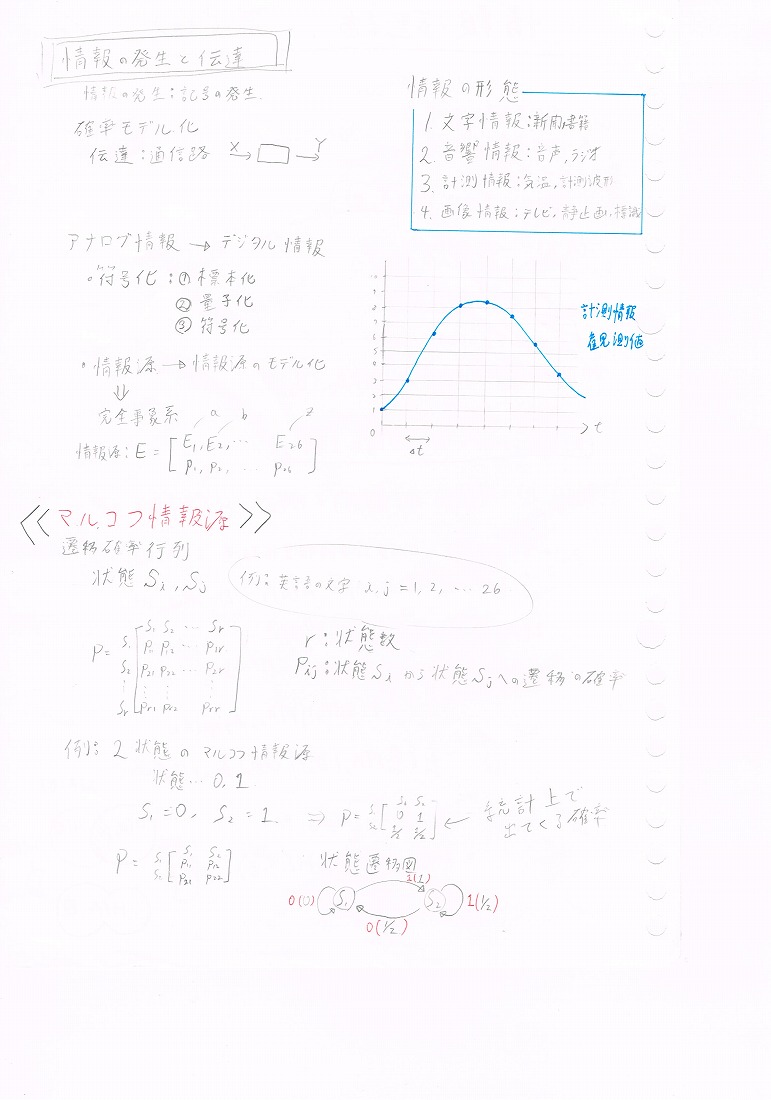 情報の発生と伝達
情報の発生:記号の発生.
確率モデル化
伝達:通信路 X → → Y
情報の形態
1. 文字情報:新聞,書籍
2. 音響情報:音声,ラジオ
3. 計測情報:気温,計測波形
4. 画像情報:テレビ,静止画,標識
アナログ情報 → デジタル情報
・符号化:① 標本化
② 量子化
③ 符号化
・情報源 → 情報源のモデル化
⇓
完全事象系 a b z
情報源:E = [ E1, E2, … E26
p1, p2, … p26 ]
計測情報
測値
0
t
Δt
≪マルコフ情報源≫
遷移確率行列
状態 Si, Sj
例:英語の文字 i, j = 1, 2, … 26
S1 S2 … Sr
P = S1 p11 p12 … p1r
S2 p21 p22 … p2r
⋮ ⋮ ⋮ ⋮
Sr pr1 pr2 … prr
r:状態数
Pij:状態Si から 状態Sjへの遷移の確率
例:2状態のマルコフ情報源
状態…0, 1
S1 = 0, S2 = 1 ⇒ P = S1 S2
S1 0 1
S2 1/2 1/2
← 統計上で
出てくる確率
P = S1 S2
S1 p11 p12
S2 p21 p22
状態遷移図
1(1)
0(0) S1 S2 1(1/2)
0(1/2)